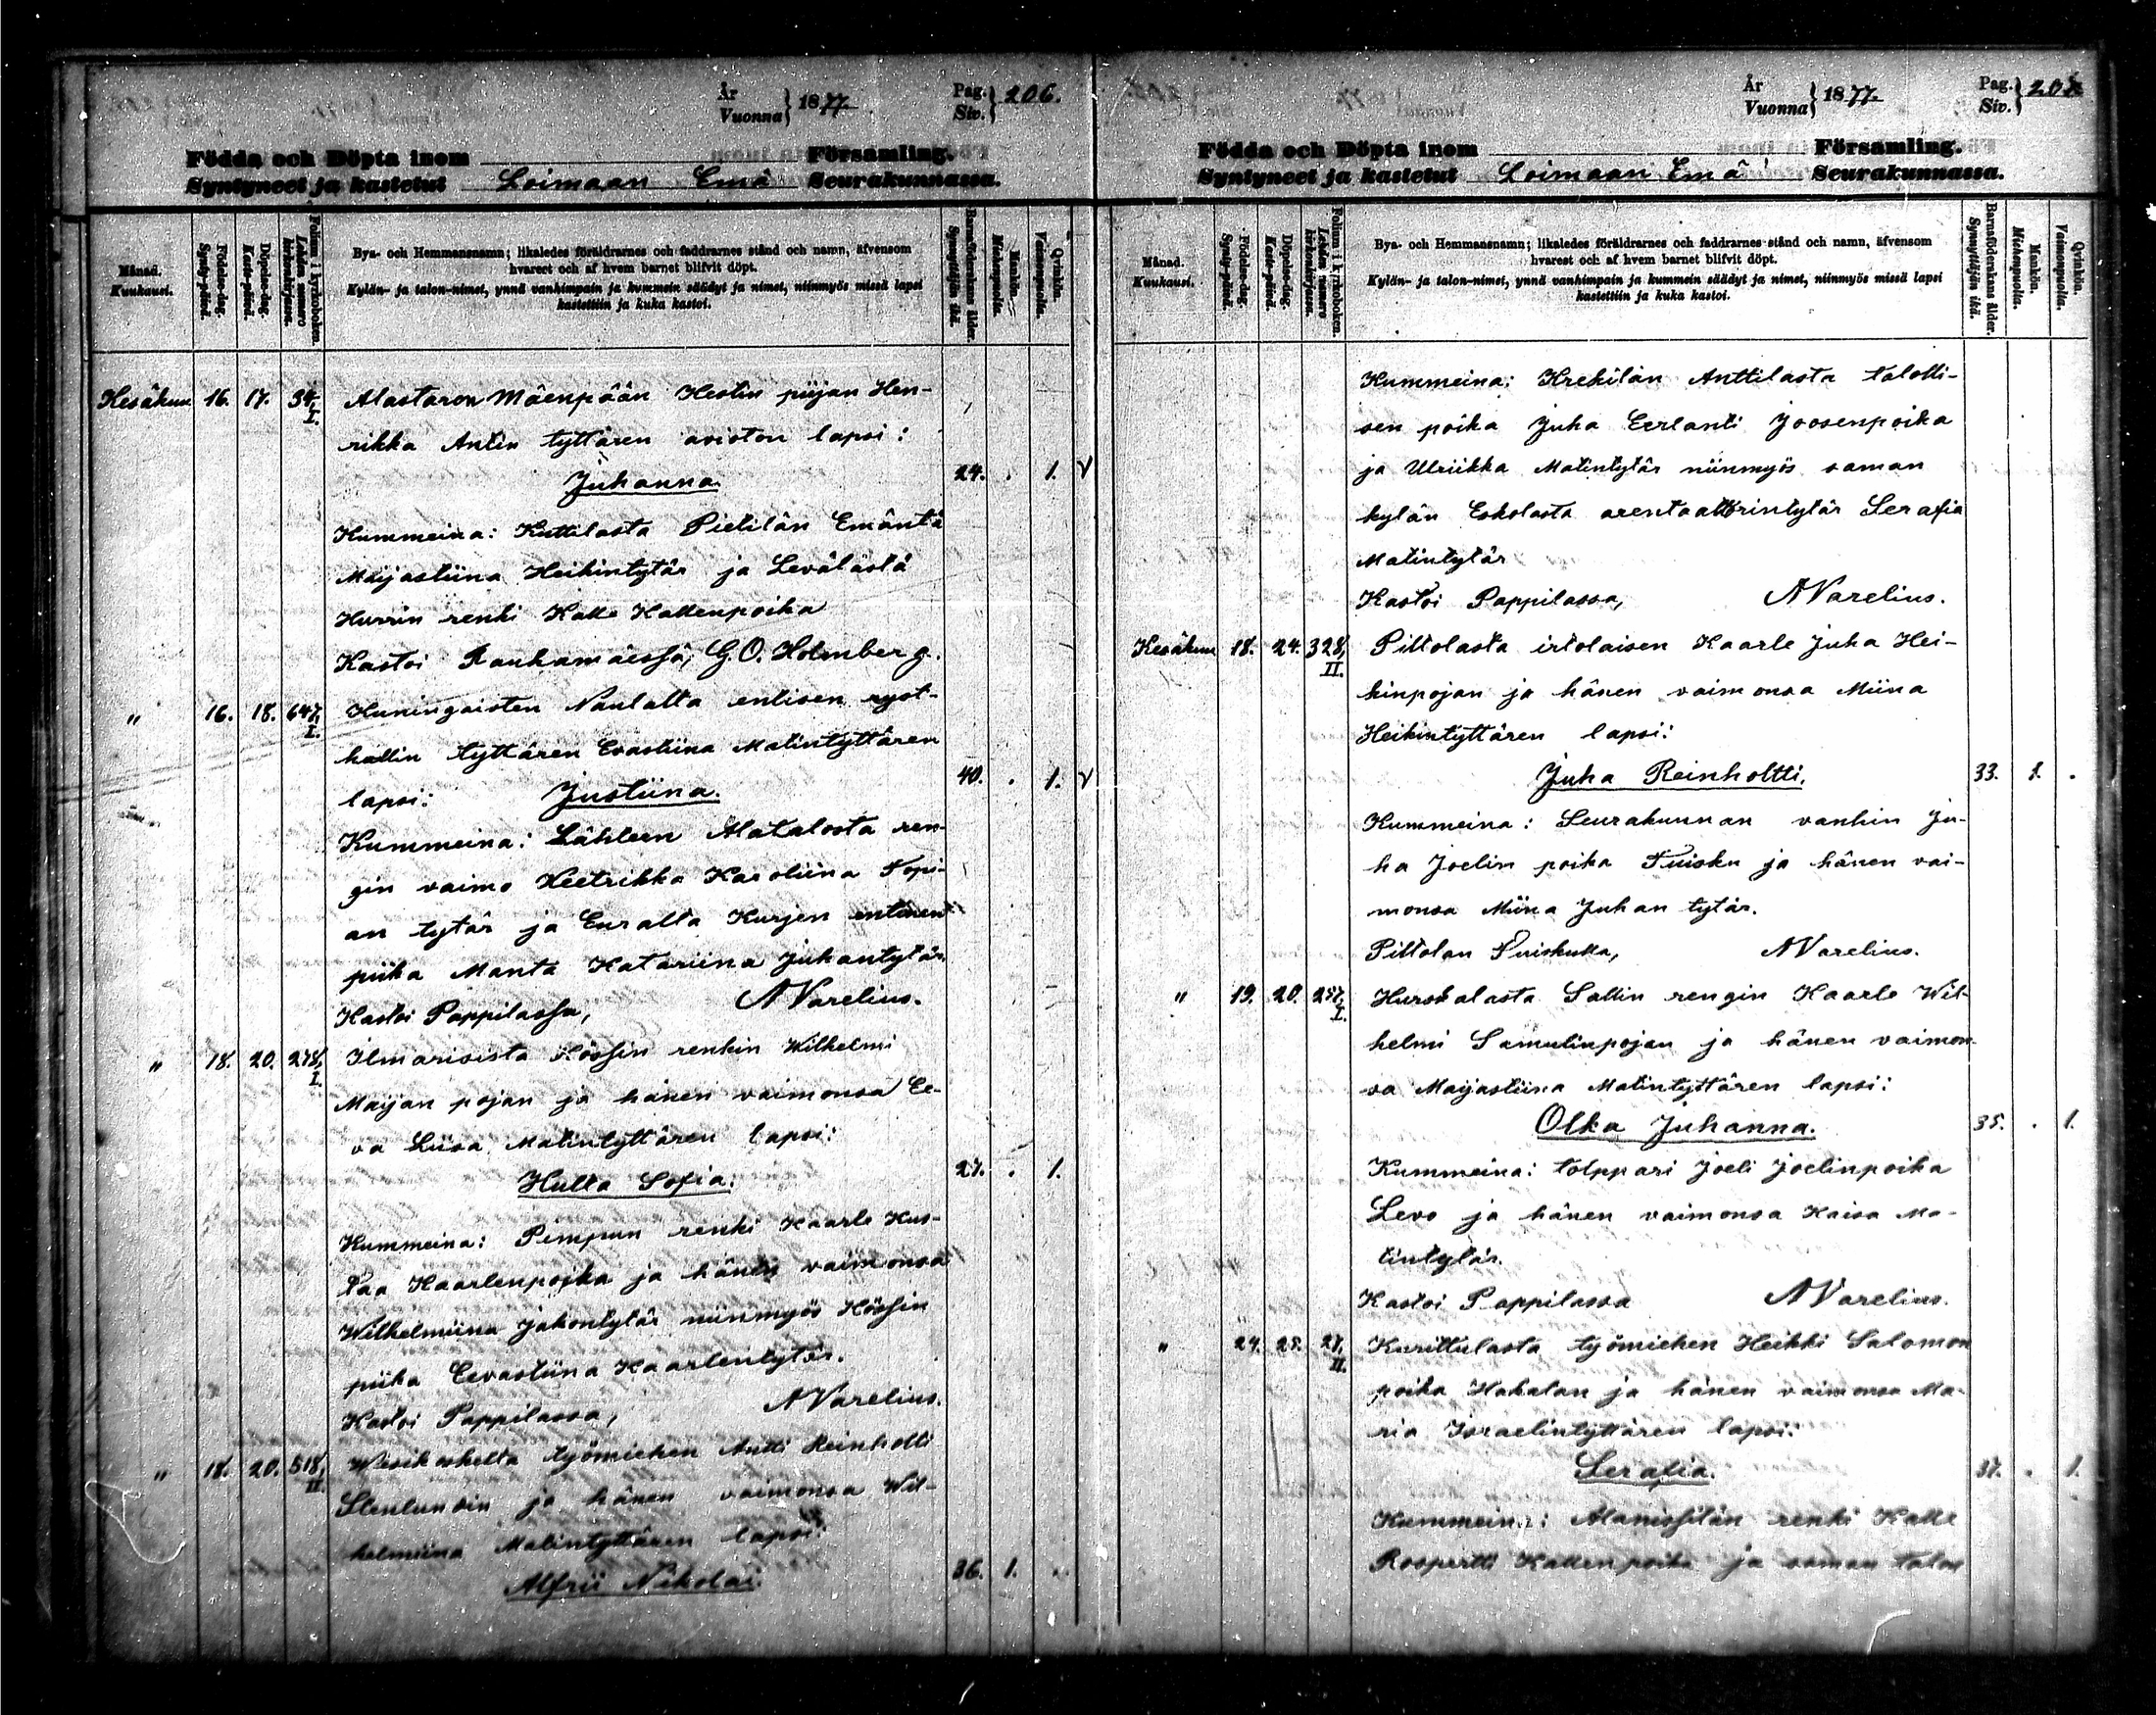 År
Vuonna } 1877.
Pag.
Siv. } 206.
Födda och Döpta inom Församling.
Syntyneet ja kastetut Loimaan Emä Seurakunnassa.
Månad.
Kuukausi.
Födelse-dag.
Synty-päivä.
Döpelse-dag.
Kaste-päivä.
Folium i kyrkoboken.
Lehden numero kirkonkirjassa.
Bya- och Hemmansnamn; likaledes föräldrarnes och faddrarnes stånd och namn, äfvensom
hvarest och af hvem barnet blifvit döpt.
Kylän- ja talon-nimet, ynnä vanhimpain ja kummein säädyt ja nimet, niinmyös missä lapsi
kastettiin ja kuka kastoi.
Barnaföderskans ålder.
Synnyttäjän ikä.
Mankön.
Miehenpuolia.
Qvinkön.
Vaimonpuolia.
Kesäkuu 16. 17. 34, I. Alastaron Mäenpään Hestin piijan Hen-
rikka Antin tyttären avioton lapsi:
Juhanna. 24. . 1. V
Kummeina: Kuttilasta Pietilän Emäntä
Maijastiina Heikintytär ja Levälästä
Hurrin renki Kalle Kallenpoika
Kastoi Rauhamäessä, G.O. Holmberg.
" 16. 18. 647, I. Kuningaisten Naulalta entisen ryst-
hallin tyttären Evastiina Matintyttären
lapsi: Justiina. 40. . 1. V
Kummeina: Lähteen Alatalosta ren-
gin vaimo Heetrikka Karoliina Topi-
an tytär ja Euralta Kurjen entinen
piika Manta Katariina Juhantytär
Kastoi Pappilassa, A Varelius.
" 18. 20. 278, I. Ilmarisista Hössin renkin Wilhelmi
Maijan pojan ja hänen vaimonsa Ee-
va Liisa Matintyttären lapsi:
Hulta Sofia. 27. . 1.
Kummeina: Pimpun renki Kaarle Kus-
taa Kaarlenpoika ja hänen vaimonsa
Wilhelmiina Jakontytär niinmyös Hössin
piika Eevastiina Kaarlentytär.
Kastoi Pappilassa, A Varelius.
" 18. 20. 518, II. Wesikoskelta työmiehen Antti Reinholti
Stenlundin ja hänen vaimonsa Wil-
helmiina Matintyttären lapsi:
Alfrii Nikolai. 36. 1. .
År
Vuonna } 1877.
Pag.
Siv. } 207
Födda och Döpta inom Församling.
Syntyneet ja kastetut Loimaan Emä Seurakunnassa.
Månad.
Kuukausi.
Födelse-dag.
Synty-päivä.
Döpelse-dag.
Kaste-päivä.
Folium i kyrkoboken.
Lehden numero kirkonkirjassa.
Bya- och Hemmansnamn; likaledes föräldrarnes och faddrarnes stånd och namn, äfvensom
hvarest och af hvem barnet blifvit döpt.
Kylän- ja talon-nimet, ynnä vanhimpain ja kummein säädyt ja nimet, niinmyös missä lapsi
kastettiin ja kuka kastoi.
Barnaföderskans ålder.
Synnyttäjän ikä.
Mankön.
Miehenpuolia.
Qvinkön.
Vaimonpuolia.
Kummeina: Krekilän Anttilasta talolli-
sen poika Juha Eerlanti Joosenpoika
ja Ulriikka Matintytär niinmyös saman
kylän Eskolasta arentaattorintytär Serafia
Matintytär
Kastoi Pappilassa, A Varelius.
Kesäkuu 18. 24. 328, II. Piltolasta irtolaisen Kaarle Juha Hei-
kinpojan ja hänen vaimonsa Miina
Heikintyttären lapsi:
Juha Reinholtti. 33. 1. .
Kummeina: Seurakunnan vanhin Ju-
ha Joelin poika Tuisku ja hänen vai-
monsa Miina Juhan tytär.
Piltolan Tuiskulla, A Varelius.
" 19. 20. 257, I. Hurskalasta Sallin rengin Kaarle Wil-
helmi Samulinpojan ja hänen vaimon-
sa Maijastiina Matintyttären lapsi:
Olka Juhanna. 35. . 1.
Kummeina: tolppari Joeli Joelinpoika
Levo ja hänen vaimonsa Kaisa Ma-
tintytär.
Kastoi Pappilassa A Varelius.
" 24. 25. 27, II. Kurittulasta työmiehen Heikki Salomon
poika Hakalan ja hänen vaimonsa Ma-
ria Israelintyttären lapsi:
Serafia. 37. . 1.
Kummeina: Alanissilän renki Kalle
Roopertti Kallenpoika ja saman talon